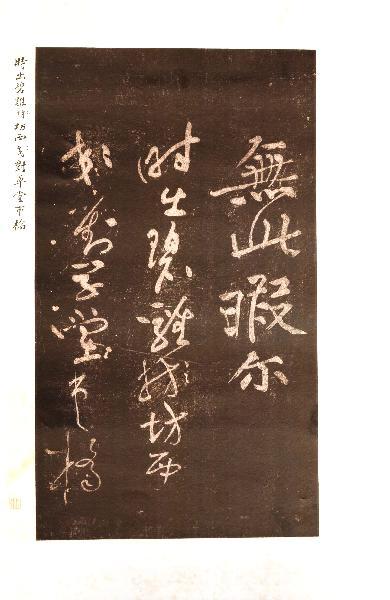 無此暇尔
時出碧雞坊西
郊對草堂市橋
時出碧雞坊西郊對草堂市橋